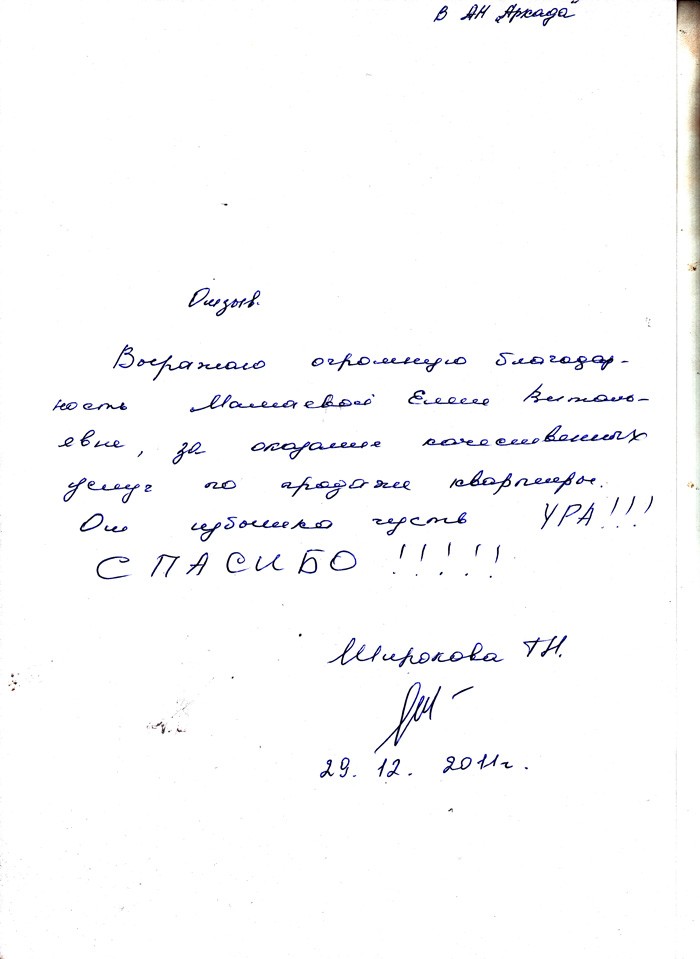 В АН „Аркада"
Отзыв.
Выражаю огромную благодар-
ность Мамаевой Елене Виталь-
евне, за оказание качественных
услуг по продаже квартиры.
От избытка чувств УРА!!!
СПАСИБО !!!!!
Широкова Т.Н.
29.12.2011г.